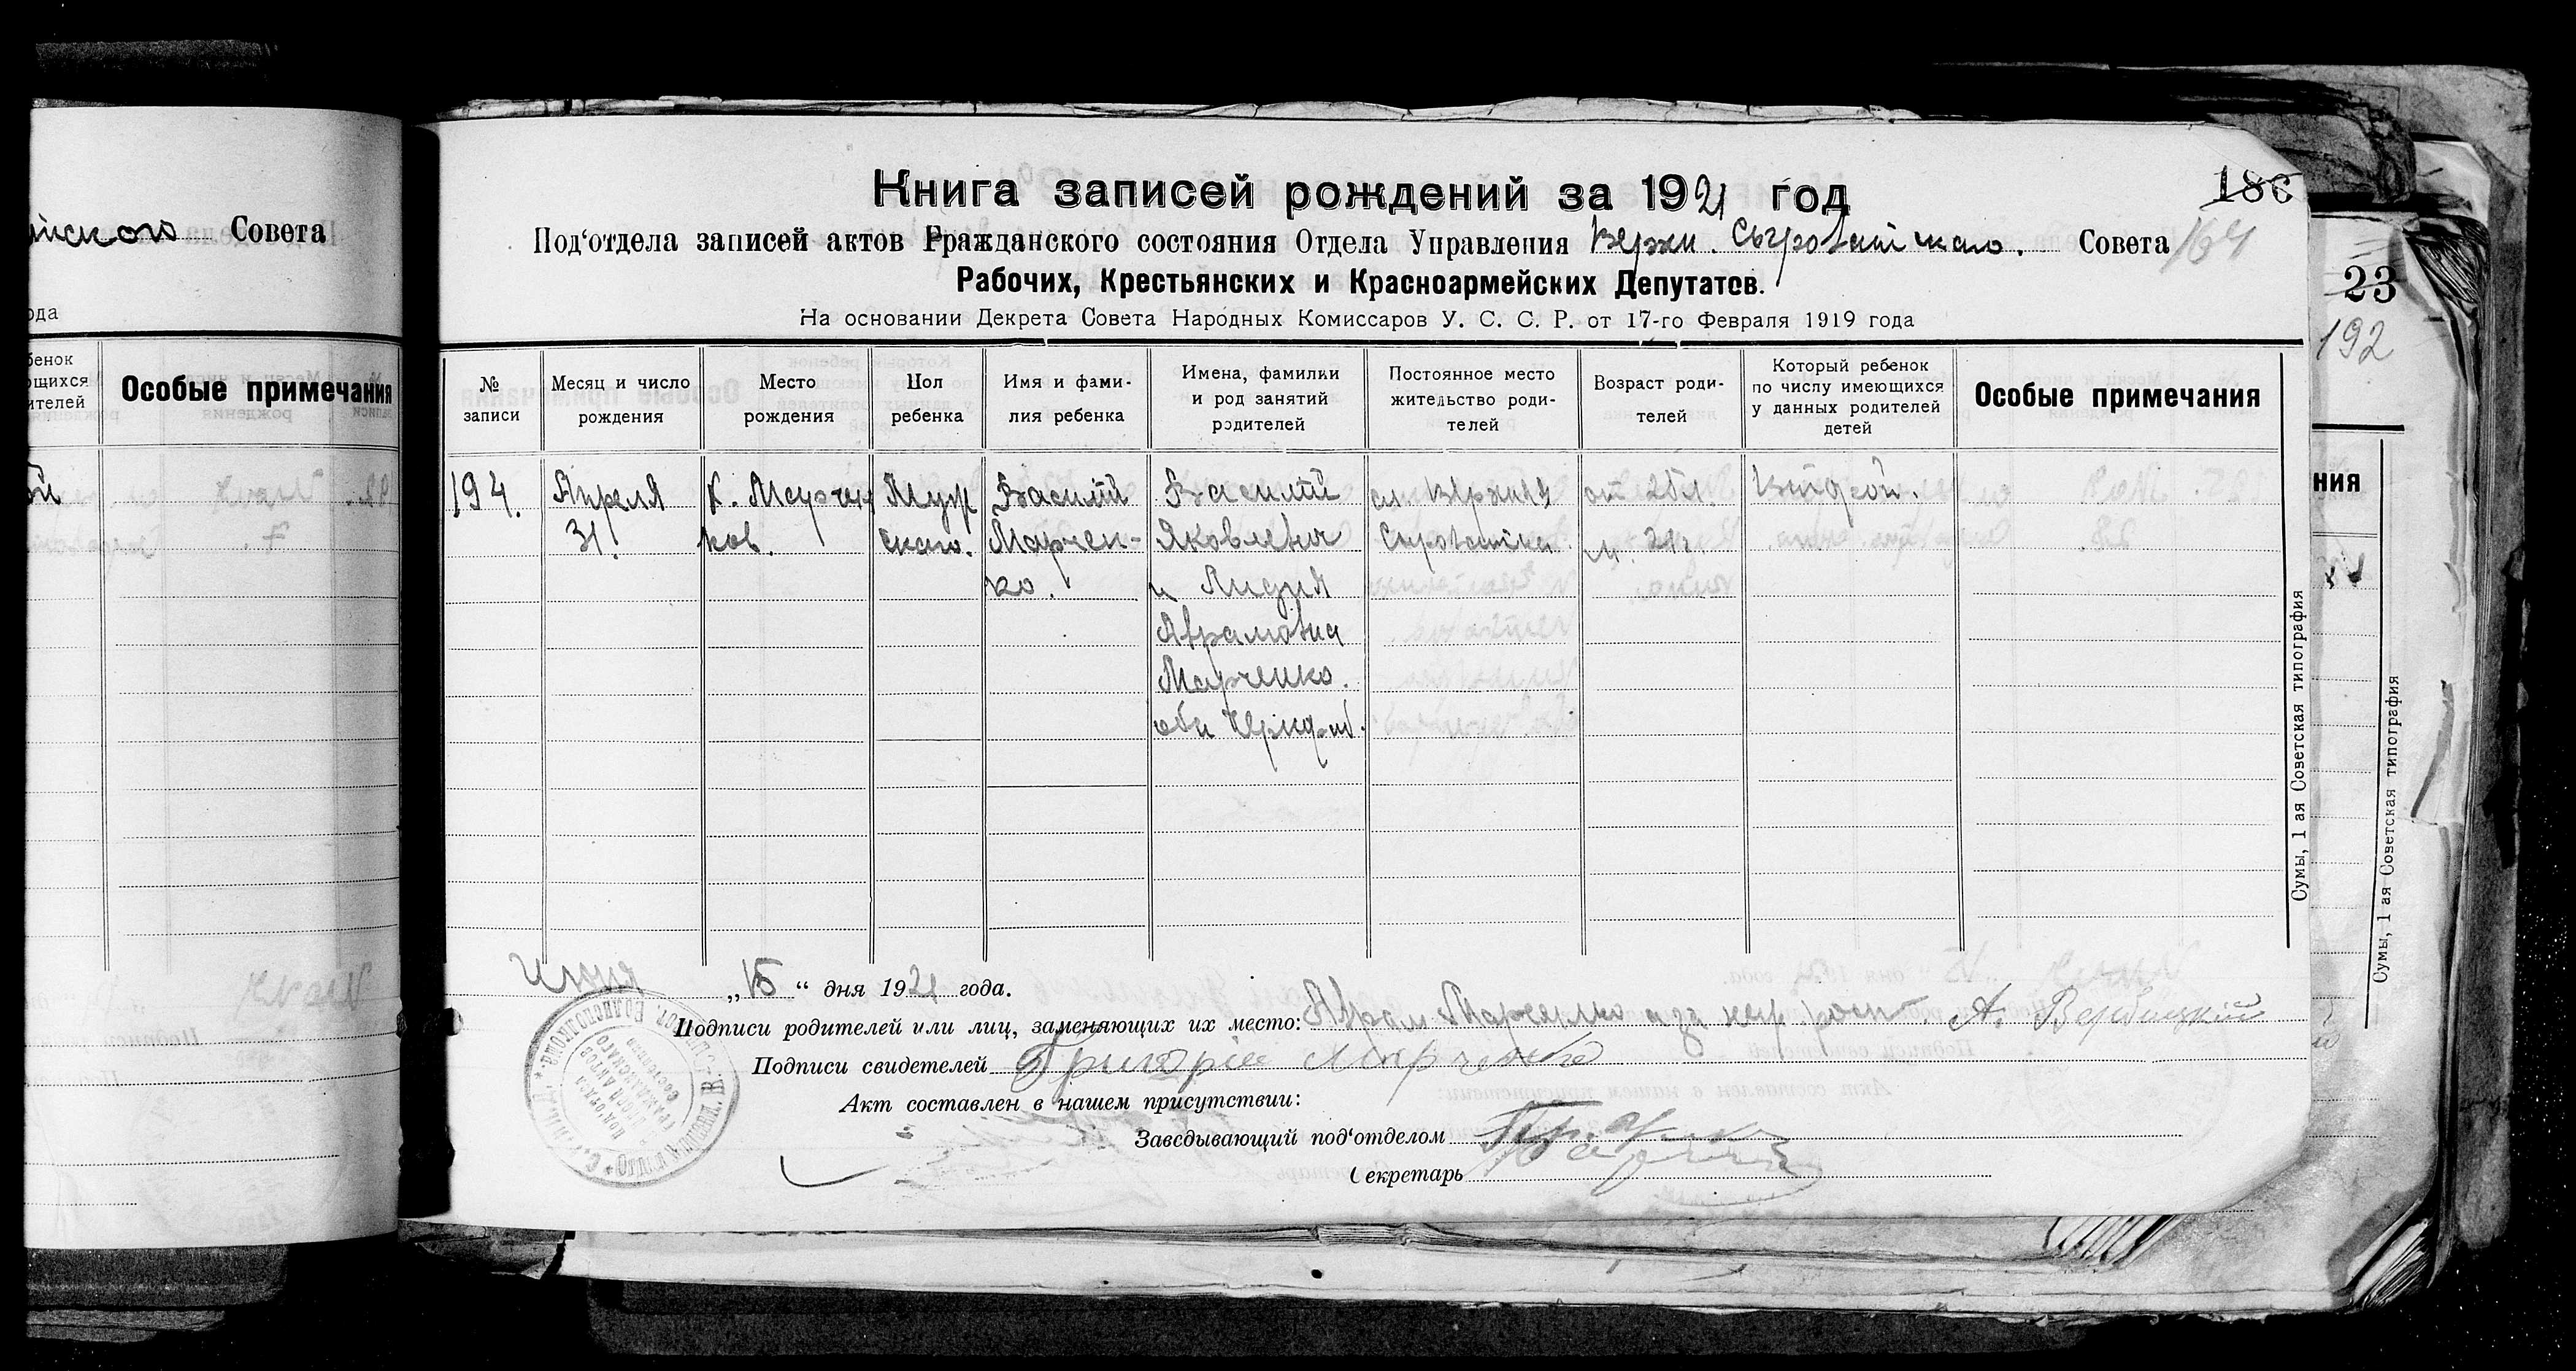 йского Совета
ода
бенок
ющихся
ителей
Особые примечания
ой
186
164
Книга записей рождений за 1921 год
Под‘отдела записей актов Гражданского состояния Отдела Управления Верхн. Сыроватского. Совета
Рабочих, Крестьянских и Красноармейских Депутатов.
На основании Декрета Совета Народных Комиссаров У. С. С. Р. от 17-го Февраля 1919 года
№ записи
Месяц и число рождения
Место рождения
Пол ребенка
Имя и фами-
лия ребенка
Имена, фамилии
и род занятий
родителей
Постоянное место
жительство роди-
телей
Возраст роди-
телей
Который ребенок
по числу имеющихся
у данных родителей
детей
Особые примечания
194.
Апреля
31.
х. Марчен
ков.
Муж
ского.
Василий
Марчен-
ко.
Василий
Яковлевич
и Лидия
Аврамовна
Марченко.
оба
сл. Верхняя
Сыроватка.
от 26л.
м. 21г.
Второй.
Июня „15“ дня 1921 года.
Подписи родителей или лиц, заменяющих их место: Аврам Марченко а за негр. росп. А. Вербицкий
Подписи свидетелей Григорий Марченко
Акт составлен в нашем присутствии:
Заведывающий под‘отделом
Секретарь
Сумы, 1 ая Советская типография
23
192
ния
Сумы, 1 ая Советская типография